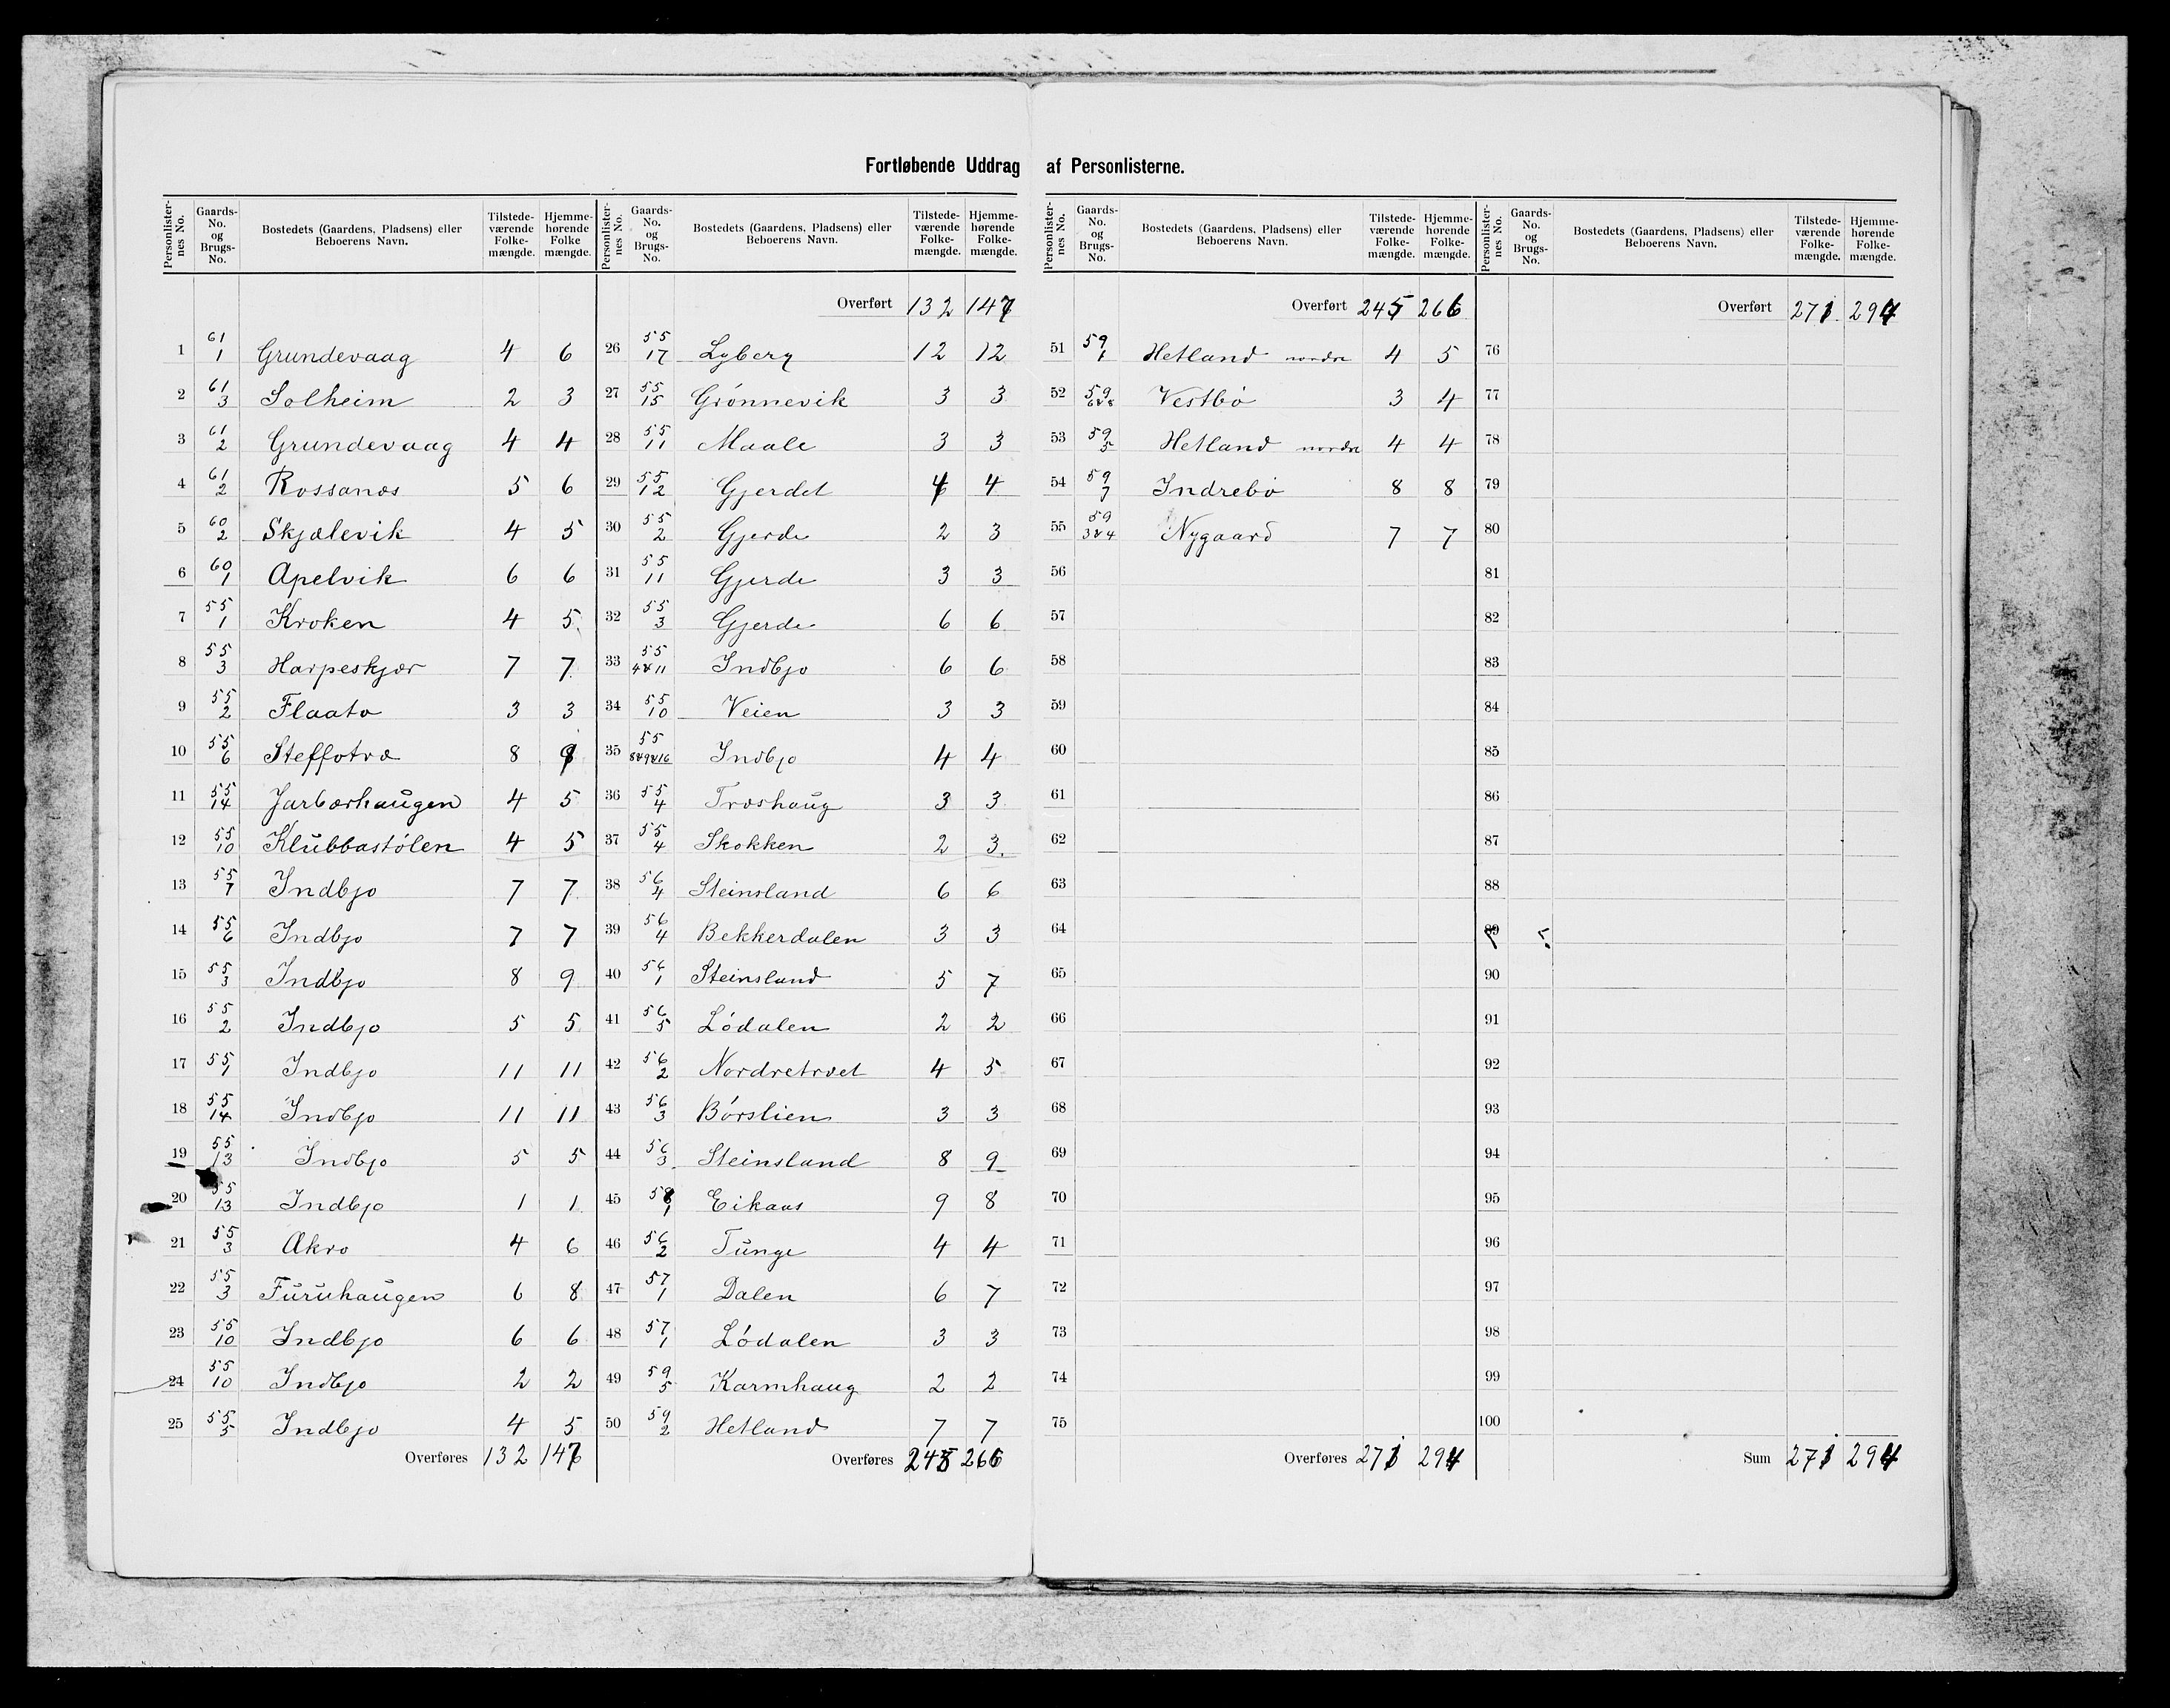 Fortløbende Uddrag af Personlisterne.
Personlisternes No. | Gaards-No. og Brugs-No. | Bostedets (Gaardens, Pladsens) eller Beboerens Navn. | Tilstedeværende Folkemængde. | Hjemmehørende Folkemængde.
1 61/1 Grundevaag 4 6
2 61/3 Solheim 2 3
3 61/2 Grundevaag 4 4
4 61/2 Rossanæs 5 6
5 60/2 Skjælevik 4 5
6 60/1 Apelvik 6 6
7 55/1 Kroken 4 5
8 55/3 Harpeskjær 7 7
9 55/2 Flaato 3 3
10 55/6 Steffotræ 8
11 55/14 Jarbærhaugen 4 5
12 55/10 Klubbastølen 4 5
13 55/7 Indbjo 7 7
14 55/6 Indbjo 7 7
15 55/3 Indbjo 8 9
16 55/2 Indbjo 5 5
17 55/1 Indbjo 11 11
18 55/14 Indbjo 11 11
19 55/13 Indbjo 5 5
20 55/13 Indbjo 1 1
21 55/3 Ækro 4 6
22 55/3 Furuhaugen 6 8
23 55/10 Indbjo 6 6
24 55/10 Indbjo 2 2
25 55/5 Indbjo 4 5
Overføres 132 147
Personlisternes No. | Gaards-No. og Brugs-No. | Bostedets (Gaardens, Pladsens) eller Beboerens Navn. | Tilstedeværende Folkemængde. | Hjemmehørende Folkemængde.
Overført 132 147
26 55/17 Lyberg 12 12
27 55/15 Grønnevik 3 3
28 55/11 Maale 3 3
29 55/12 Gjerdet 4 4
30 55/2 Gjerde 2 3
31 55/11 Gjerde 3 3
32 55/3 Gjerde 6 6
33 55/4&11 Indbjo 6 6
34 55/10 Veien 3 3
35 55/8&9&16 Indbjo 4 4
36 55/4 Træshaug 3 3
37 55/4 Skokken 2 3
38 56/4 Steinsland 6 6
39 56/4 Bekkerdalen 3 3
40 56/1 Steinsland 5 7
41 56/5 Lødalen 2 2
42 56/2 Nordretræet 4 5
43 56/3 Børslien 3 3
44 56/3 Steinsland 8 9
45 58/1 Eikaas 9 8
46 56/2 Tunge 4 4
47 57/1 Dalen 6 7
48 57/1 Lødalen 3 3
49 59/5 Karmhaug 2 2
50 59/2 Hetland 7 7
Overføres 245 266
Personlisternes No. | Gaards-No. og Brugs-No. | Bostedets (Gaardens, Pladsens) eller Beboerens Navn. | Tilstedeværende Folkemængde. | Hjemmehørende Folkemængde.
Overført 245 266
51 59/1 Hetland nordre 4 5
52 59/6&8 Vestbø 3 4
53 59/5 Hetland nordre 4 4
54 59/7 Indrebø 8 8
55 59/3&4 Nygaard 7 7
56
57
58
59
60
61
62
63
64
65
66
67
68
69
70
71
72
73
74
75
Overføres 271 294
Personlisternes No. | Gaards-No. og Brugs-No. | Bostedets (Gaardens, Pladsens) eller Beboerens Navn. | Tilstedeværende Folkemængde. | Hjemmehørende Folkemængde.
Overført 271 294
76
77
78
79
80
81
82
83
84
85
86
87
88
89
90
91
92
93
94
95
96
97
98
99
100
Sum 271 294